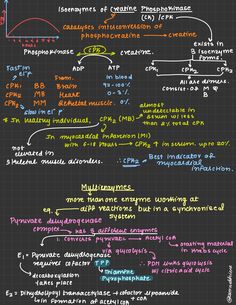 Isoenzymes of Creatine Phosphokinase
(CK) / CPK
HOURS
catalyses interconversion of
phosphocreatine → creatine
Phosphokinase
CPK
creatine.
ADP
ATP
exists in
3 isoenzyme
forms.
CPK₁ CPK₂ CPK₃
All are dimers.
Consists of M
B
Fast in
From.
In blood
CPK₁ BB Brain
CPK₂ MB Heart
CPK₃ MM Skeletal muscle.
slow in
0%.
almost
undetectable in
serum w/ less
than 2% total CPK
In healthy individual, CPK₂ (MB)
In
myocardial infarction (MI)
with 6-18 hours → CPK₂ ↑ in serum, upto 20%.
not
elevated in
skeletal muscle disorders.
∴ CPK₂ → Best indicator of
myocardial
infarction.
Multienzymes
more than one enzyme working at
diff reactions but in a synchronised
system
eg.
Pyruvate dehydrogenase
complex
has 3 different enzymes
converts pyruvate → Acetyl CoA
via glycolysis
starting material
in Krebs cycle
∴ PDH links glycolysis
w/ citric acid cycle
E₁ = Pyruvate dehydrogenase
requires cofactor TPP
decarboxylation
takes place
Thiamine
Pyrophosphate
E₂ = Dihydrolipoyl transacetylase → cofactor lipoamide
formation of acetyl CoA + CoA